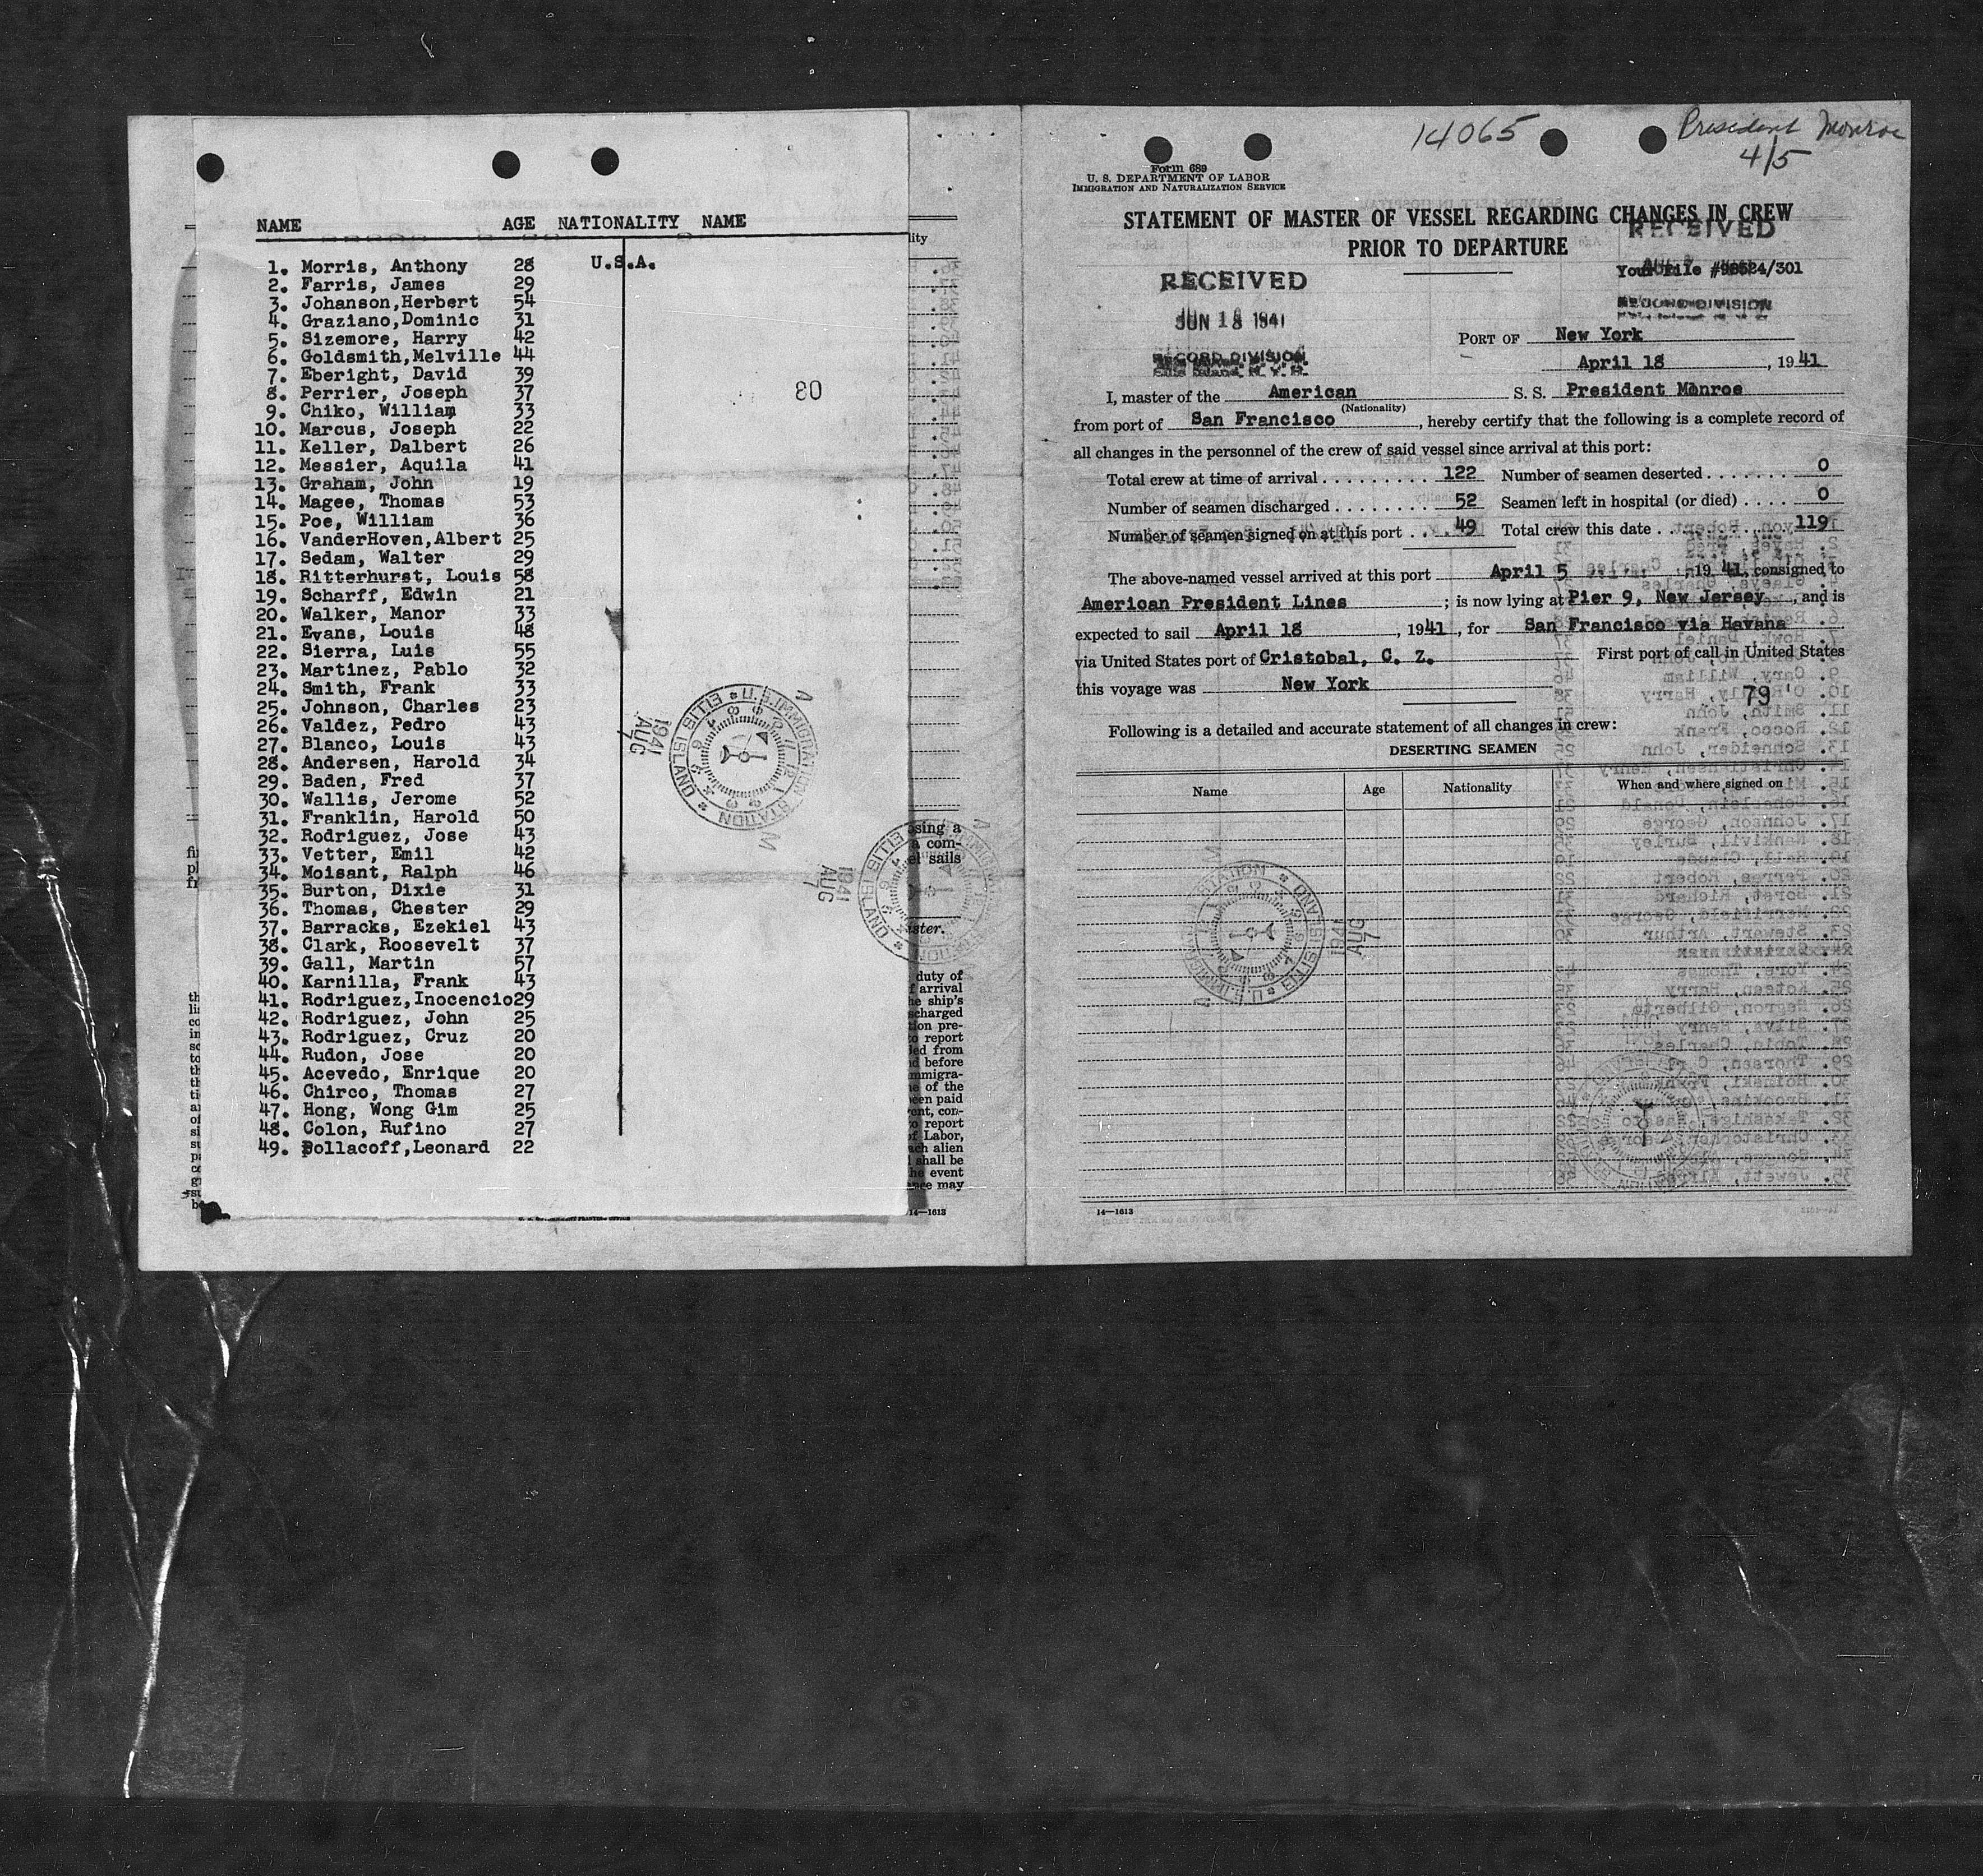 NAME AGE NATIONALITY NAME
1. Morris, Anthony 28 U.S.A.
2. Farris, James 29
3. Johanson,Herbert 54
4. Graziano,Dominic 31
5. Sizemore, Harry 42
6. Goldsmith,Melville 44
7. Eberight, David 39
8. Perrier, Joseph 37
80
9. Chiko, William 33
10. Marcus, Joseph 22
11. Keller, Dalbert 26
12. Messier, Aquila 41
13. Graham, John 19
14. Magee, Thomas 53
15. Poe, William 36
16. VanderHoven,Albert 25
17. Sedam, Walter 29
18. Ritterhurst, Louis 58
19. Scharff, Edwin 21
20. Walker, Manor 33
21. Evans, Louis 48
22. Sierra, Luis 55
23. Martinez, Pablo 32
24. Smith, Frank 33
25. Johnson, Charles 23
26. Valdez, Pedro 43
27. Blanco, Louis 43
28. Andersen, Harold 34
29. Baden, Fred 37
30. Wallis, Jerome 52
31. Franklin, Harold 50
32. Rodriguez, Jose 43
33. Vetter, Emil 42
34. Moisant, Ralph 46
35. Burton, Dixie 31
36. Thomas, Chester 29
37. Barracks, Ezekiel 43
38. Clark, Roosevelt 37
39. Gall, Martin 57
40. Karnilla, Frank 43
41. Rodriguez,Inocencio29
42. Rodriguez, John 25
43. Rodriguez, Cruz 20
44. Rudon, Jose 20
45. Acevedo, Enrique 20
46. Chirco, Thomas 27
47. Hong, Wong Gim 25
48. Colon, Rufino 27
49. Pollacoff,Leonard 22
U.S. IMMIGRATION STATION * ELLIS ISLAND *
1941 AUG 7
lity
osing a
a com-
el sails
ster.
duty of
f arrival
he ship's
scharged
tion pre-
to report
led from
d before
mmigra-
e of the
een paid
ent, con-
o report
of Labor,
ach alien
shall be
he event
nce may
14—1613
14065
President Monroe
4/5
Form 689
U. S. DEPARTMENT OF LABOR
IMMIGRATION AND NATURALIZATION SERVICE
STATEMENT OF MASTER OF VESSEL REGARDING CHANGES IN CREW
PRIOR TO DEPARTURE
RECEIVED
RECEIVED
JUN 18 1941
RECORD DIVISION
Ellis Island, N. Y. H.
Your File #98524/301
RECORD DIVISION
PORT OF New York
April 18, 1941
I, master of the American S. S. President Monroe
(Nationality)
from port of San Francisco, hereby certify that the following is a complete record of
all changes in the personnel of the crew of said vessel since arrival at this port:
Total crew at time of arrival 122 Number of seamen deserted 0
Number of seamen discharged 52 Seamen left in hospital (or died) 0
Number of seamen signed on at this port 49 Total crew this date 119
The above-named vessel arrived at this port April 5, 1941, consigned to
American President Lines; is now lying at Pier 9, New Jersey, and is
expected to sail April 18, 1941, for San Francisco via Havana
via United States port of Cristobal, C. Z. First port of call in United States
this voyage was New York
79
Following is a detailed and accurate statement of all changes in crew:
DESERTING SEAMEN
Name Age Nationality When and where signed on
U.S. IMMIGRATION STATION * ELLIS ISLAND *
1941 AUG 7
14—1613